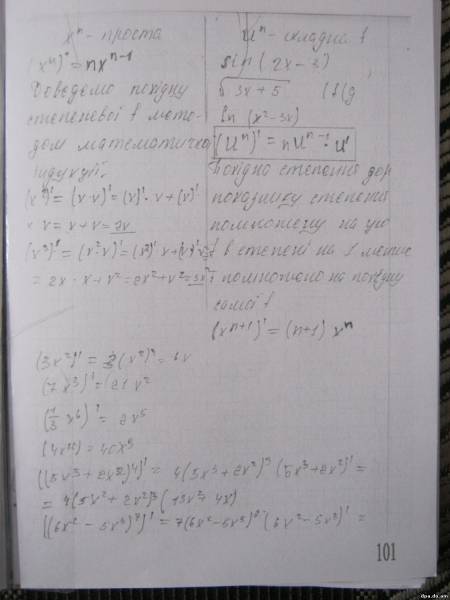 xⁿ - проста
(xⁿ)' = nxⁿ⁻¹
Доведемо похідну
степеневої f мето-
дом математично
індукції.
(x²)' = (x·x)' = (x)'·x + (x)'
× x = x + x = 2x
(x³)' = (x²·x)' = (x²)'·x + (x)'x²
= 2x·x + x² = 2x² + x² = 3x²
Uⁿ - складна f
sin(2x-3)
√3x+5
ln(x²-3x)
(Uⁿ)' = nUⁿ⁻¹·U'
Похідна степення дор
показнику степення
помножену на цю
f в степені на 1 менше
помножено на похідну
самої f
(xⁿ⁺¹)' = (n+1)xⁿ
(3x²)' = 3(x²)' = 6x
(7x³)' = 21x²
(⅓x⁶)' = 2x⁵
((5x³+2x²)⁴)' = 4(5x³+2x²)³(5x³+2x²)' =
= 4(5x³+2x²)³(15x²+4x)
101
dpa.do.am